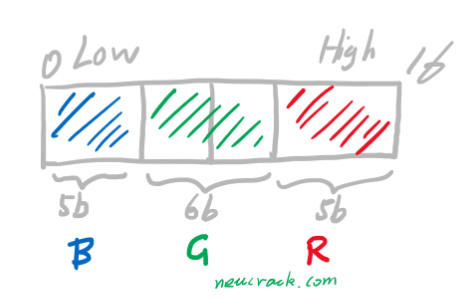 0 Low High 16
5b 6b 5b
B G R
neucrack.com